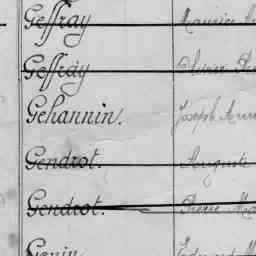 Geffray Maurice
Geffray Olivier
Gehannin. Joseph
Gendrot. Auguste
Gendrot. Pierre
Genin